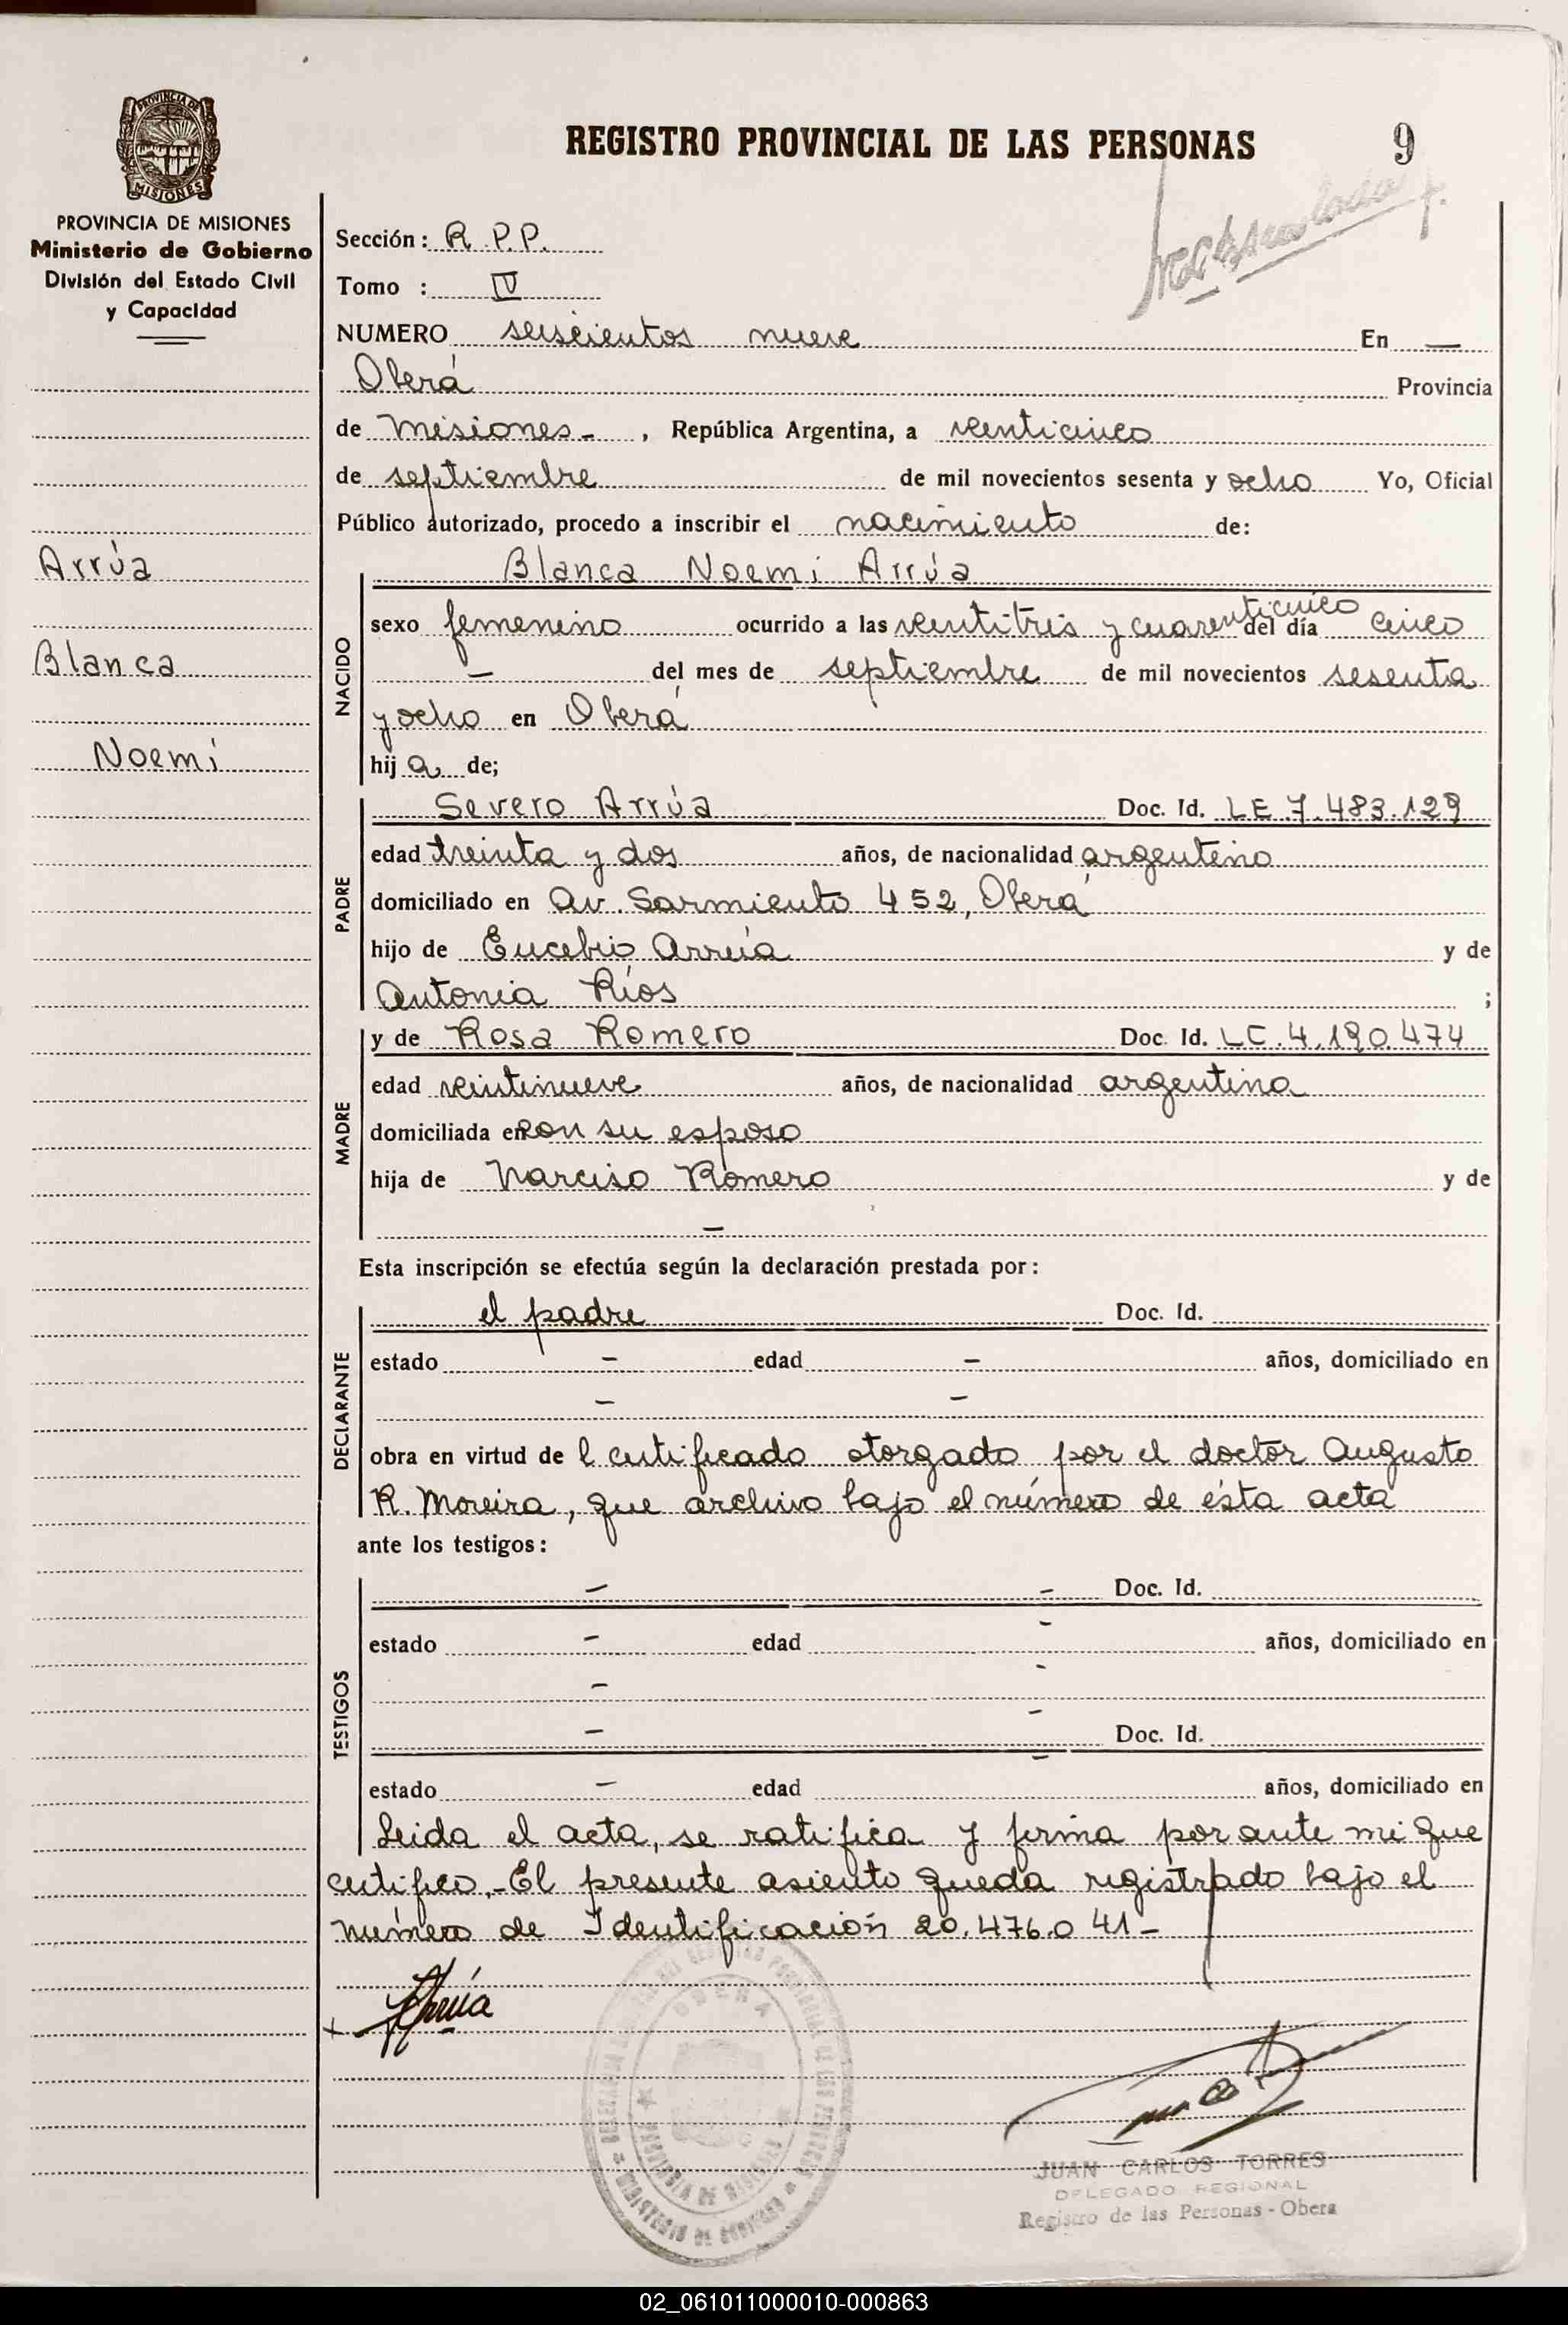 REGISTRO PROVINCIAL DE LAS PERSONAS 9
PROVINCIA DE
MISIONES
PROVINCIA DE MISIONES
Ministerio de Gobierno
División del Estado Civil
y Capacidad
Arrúa
Blanca
Noemí
Sección: R.P.P.
Tomo : IV
NUMERO seiscientos nueve En —
Oberá Provincia
de Misiones - , República Argentina, a venticinco
de septiembre de mil novecientos sesenta y ocho Yo, Oficial
Público autorizado, procedo a inscribir el nacimiento de:
NACIDO
Blanca Noemí Arrúa
sexo femenino ocurrido a las ventitrés y cuarenticinco del día cinco
— del mes de septiembre de mil novecientos sesenta
y ocho en Oberá
hij a de;
PADRE
Severo Arrúa Doc. Id. LE 7.483.129
edad treinta y dos años, de nacionalidad argentino
domiciliado en Av. Sarmiento 452, Oberá
hijo de Eucebio Arrúa y de
Antonia Ríos ;
MADRE
y de Rosa Romero Doc. Id. LC.4.190.474
edad veintinueve años, de nacionalidad argentina
domiciliada en con su esposo
hija de Narciso Romero y de
—
Esta inscripción se efectúa según la declaración prestada por:
DECLARANTE
el padre Doc. Id.
estado — edad — años, domiciliado en
— —
obra en virtud de l certificado otorgado por el doctor Augusto
R. Moreira, que archivo bajo el número de ésta acta
ante los testigos:
TESTIGOS
— — Doc. Id.
estado — edad - años, domiciliado en
— -
— - Doc. Id.
estado — edad - años, domiciliado en
Leida el acta, se ratifica y firma por ante mi que
certifico.-El presente asiento queda registrado bajo el
número de Identificación 20.476.041-
x Arrúa
OBERA
PROVINCIA DE MISIONES
MINISTERIO DE GOBIERNO
JUAN CARLOS TORRES
DELEGADO REGIONAL
Registro de las Personas - Obera
02_061011000010-000863